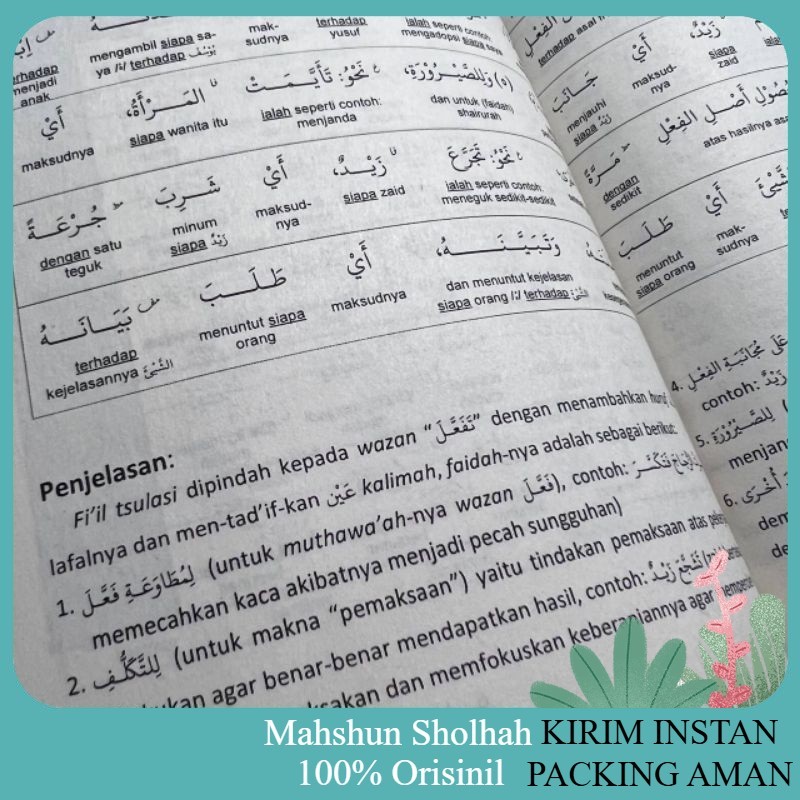 mengambil siapa sa-
ya /أ/ terhadap يُوْسُفَ
mak-
sudnya
terhadap
yusuf
ialah seperti contoh:
mengadopsi siapa saya
menjadi
anak
أَيْ
maksudnya
الْمَرْأَةُ،
siapa wanita itu
نَحْوُ: تَأَيَّمَتْ
ialah seperti contoh:
menjanda
(٥) وَلِلصَّيْرُوْرَةِ،
dan untuk (faidah)
shairurah
جُرْعَةً
dengan satu
teguk
شَرِبَ
minum
siapa زَيْدٌ
أَيْ
maksud-
nya
زَيْدٌ،
siapa zaid
نَحْوُ: تَجَرَّعَ
ialah seperti contoh:
meneguk sedikit-sedikit
بَيَانَهُ
terhadap
kejelasannya الشَّيْئِ
طَلَبَ
menuntut siapa
orang
أَيْ
maksudnya
وَتَبَيَّنَهُ،
dan menuntut kejelasan
siapa orang /أ/ terhadap الشَّيْئِ
زَيْدٌ،
siapa
zaid
أَيْ
maksud-
nya
جَانَبَ
menjauhi
siapa زَيْدٌ
أَصْلِ الْفِعْلِ
atas hasilnya
مَرَّةً
dengan
sedikit
أَيْ
mak-
sudnya
طَلَبَ
menuntut
siapa orang
Penjelasan:
Fi'il tsulasi dipindah kepada wazan "تَفَعَّلَ" dengan menambahkan
lafalnya dan men-tad'if-kan عَيْن kalimah, faidah-nya adalah sebagai berikut:
1. لِمُطَاوَعَةِ فَعَّلَ (untuk muthawa'ah-nya wazan فَعَّلَ), contoh:
memecahkan kaca akibatnya menjadi pecah sungguhan)
2. لِلتَّكَلُّفِ (untuk makna "pemaksaan") yaitu tindakan pemaksaan atas
agar benar-benar mendapatkan hasil, contoh: تَشَجَّعَ زَيْدٌ
dan memfokuskan keberaniannya agar
4. عَلَى مُجَانَبَةِ الْفِعْلِ
contoh: زَيْدٌ
5. لِلصَّيْرُوْرَةِ
6. أُخْرَى
Mahshun Sholhah KIRIM INSTAN
100% Orisinil PACKING AMAN